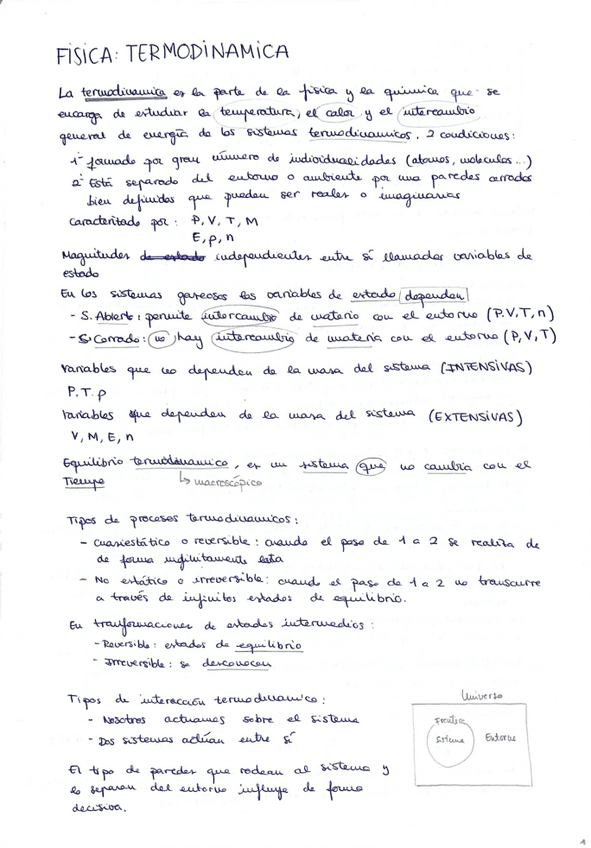 FÍSICA: TERMODINAMICA
La termodinamica es la parte de la física y la química que se
encarga de estudiar la temperatura, el calor y el intercambio
general de energía de los sistemas termodinamicos, 2 condiciones:
1º formado por gran número de individualidades (atomos, moleculas...)
2º Está separado del entorno o ambiente por una paredes cerrados
bien definidos que puedan ser reales o imaginarias
Caracteritado por: P, V, T, M
E, ρ, n
Magnitudes de estado independientes entre sí llamados variables de
estado
En los sistemas gaseosos las variables de estado dependen
- S. Abierto: permite intercambio de materia con el entorno (P.V,T,n)
- S. Cerrado: no hay intercambio de materia con el entorno (P,V,T)
Variables que no dependen de la masa del sistema (INTENSIVAS)
P. T. ρ
Variables que dependen de la masa del sistema (EXTENSIVAS)
V, M, E, n
Equilibrio termodinamico, es un sistema que no cambia con el
Tiempo
↳ macroscópico
Tipos de procesos termodinamicos:
- Cuasiestático o reversible: cuando el paso de 1 a 2 se realiza de
de forma infinitamente lenta
- No estático o irreversible: cuando el paso de 1 a 2 no transcurre
a través de infinitos estados de equilibrio.
En transformaciones de estados intermedios:
- Reversible: estados de equilibrio
- Irreversible: se desconocen
Tipos de interacción termodinamico:
- Nosotros actuamos sobre el sistema
- Dos sistemas actúan entre sí
El tipo de paredes que rodean al sistema y
lo separan del entorno influye de forma
decisiva.
Universo
Frontera
Sistema Entorno
1